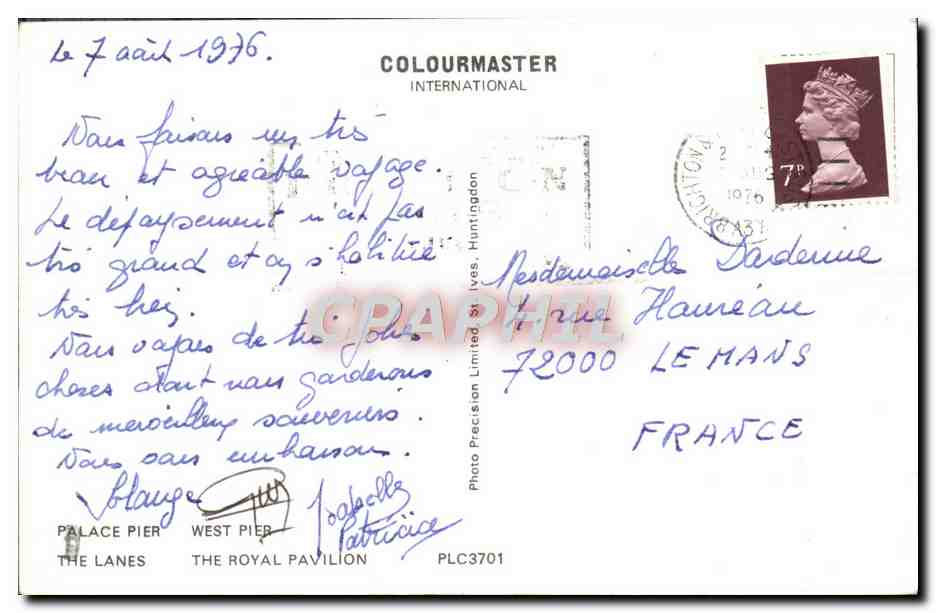 Le 7 août 1976.
COLOURMASTER
INTERNATIONAL
Nous faisons un très
beau et agréable voyage.
Le dépaysement n'est pas
très grand et on s'habitue
très bien.
Nous voyons de très jolies
choses dont nous garderons
de merveilleux souvenirs.
Nous vous embrassons.
Solange
Isabelle
Patricia
PALACE PIER WEST PIER
THE LANES THE ROYAL PAVILION PLC3701
Photo Precision Limited, St. Ives, Huntingdon
7P
BRIGHTON
1976
Mesdemoiselles Dardenne
4. rue Hauréau
72000 LE MANS
FRANCE
CPAPHIL